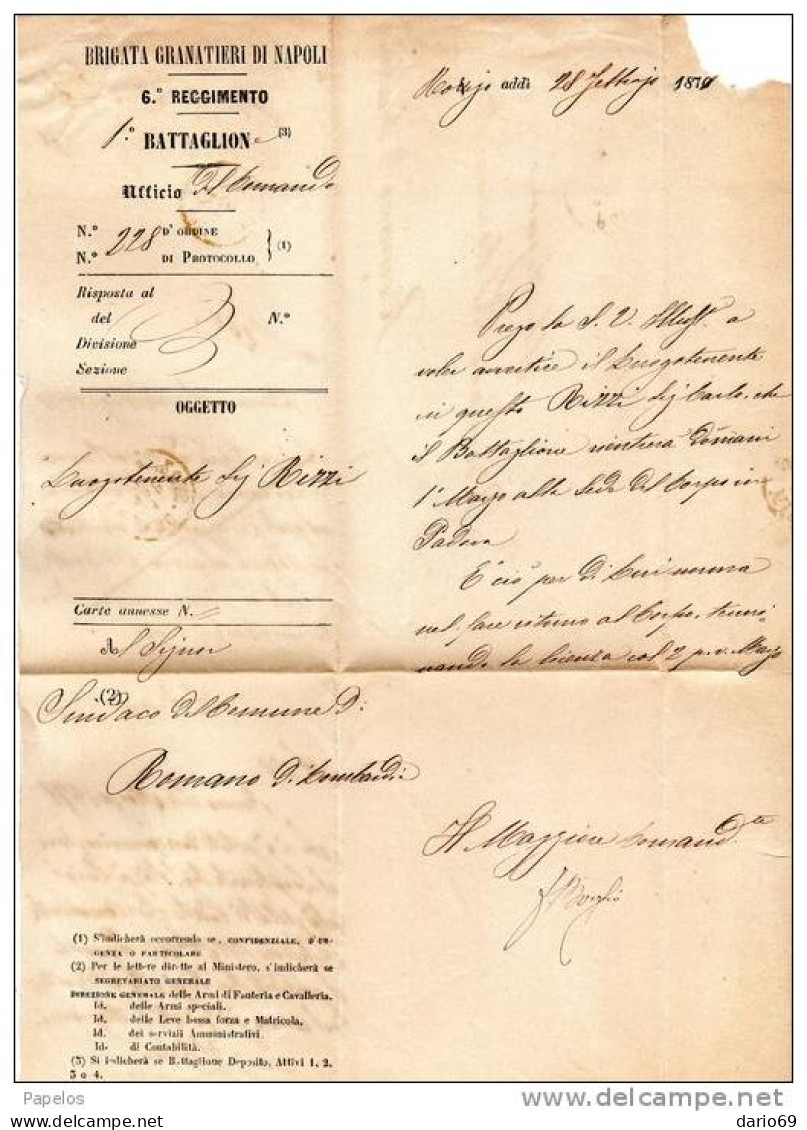 BRIGATA GRANATIERI DI NAPOLI
6.° REGGIMENTO
1° BATTAGLIONe (3)
Ufficio del Comando
N.° 228 D'ORDINE
N.° DI PROTOCOLLO } (1)
Risposta al
del N.°
Divisione
Sezione
OGGETTO
Luogotenente Sig Rizzi
Carte annesse N.
Al Signor
(2)
Sindaco del Comune di
Romano di Lombardia
addì 28 Febbrajo 1871
Prego la S. V. Illust. a
voler avvertire il Luogotenente
in questo Rizzi Sig Carlo, che
il Battaglione rientrerà domani
1° Marzo alla Sede del Corpo in
Padova
E' ciò per di Lui norma
nel fare ritorno al Corpo, termi-
nando la licenza col 2 p. v. Marzo
Il Maggiore Comand.te
(1) S'indicherà occorrendo se, CONFIDENZIALE, D'UR-
GENZA O PARTICOLARE
(2) Per le lettere dirette al Ministero, s'indicherà se
SEGRETARIATO GENERALE
DIREZIONE GENERALE delle Armi di Fanteria e Cavalleria.
Id. delle Armi speciali.
Id. delle Leve bassa forza e Matricola,
Id. dei servizi Amministrativi.
Id. di Contabilità.
(3) Si indicherà se Battaglione Deposito, Attivi 1, 2,
3 o 4.
delcampe.net
Papelos
dario69